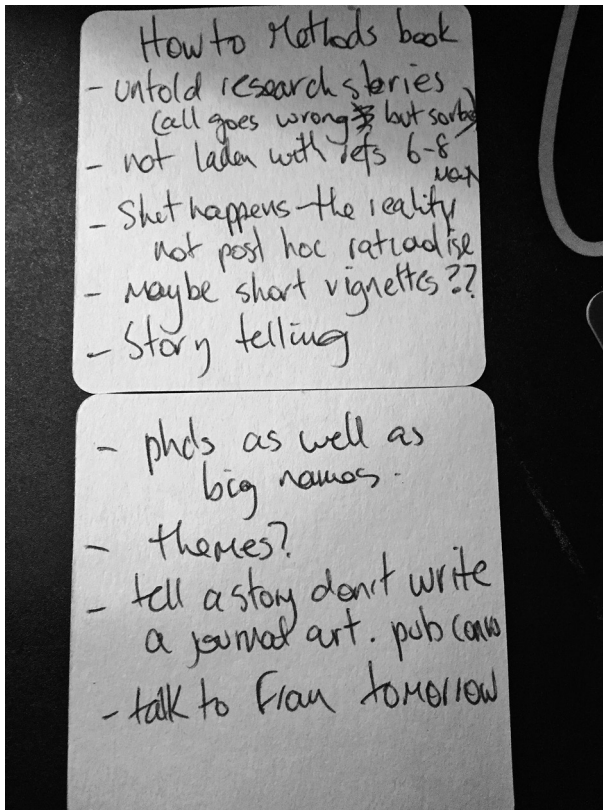 How to Methods book
- untold research stories
(all goes wrong but sorted)
- not laden with refs 6-8
Max
- Shet happens - the reality
not post hoc rationalise
- Maybe short vignettes??
- Story telling
- phds as well as
big names.
- themes?
- tell a story don't write
a journal art. pub convo
- talk to Fran tomorrow